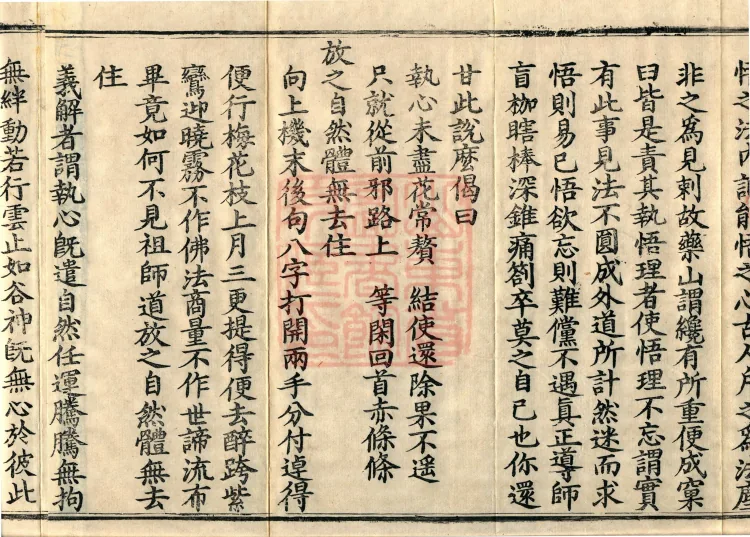 悟之法內說能悟之心古之爲法塵
非之爲見剌故藥山謂纔有所重便成窠
臼皆是責其執悟理者使悟理不忘謂實
有此事見法不圓成外道所計然迷而求
悟則易已悟欲忘則難儻不遇眞正導師
盲枷瞎棒深錐痛劄卒莫之自已也你還
甘此說麼偈曰
執心未盡花常贅　結使還除果不遙
只就從前邪路上　等閑回首赤條條
放之自然體無去住
向上機末後句八字打開兩手分付逴得
便行梅花枝上月三更提得便去醉跨紫
鸞迎曉霧不作佛法商量不作世諦流布
畢竟如何不見祖師道放之自然體無去
住
義解者謂執心旣遣自然任運騰騰無拘
無絆動若行雲止如谷神旣無心於彼此